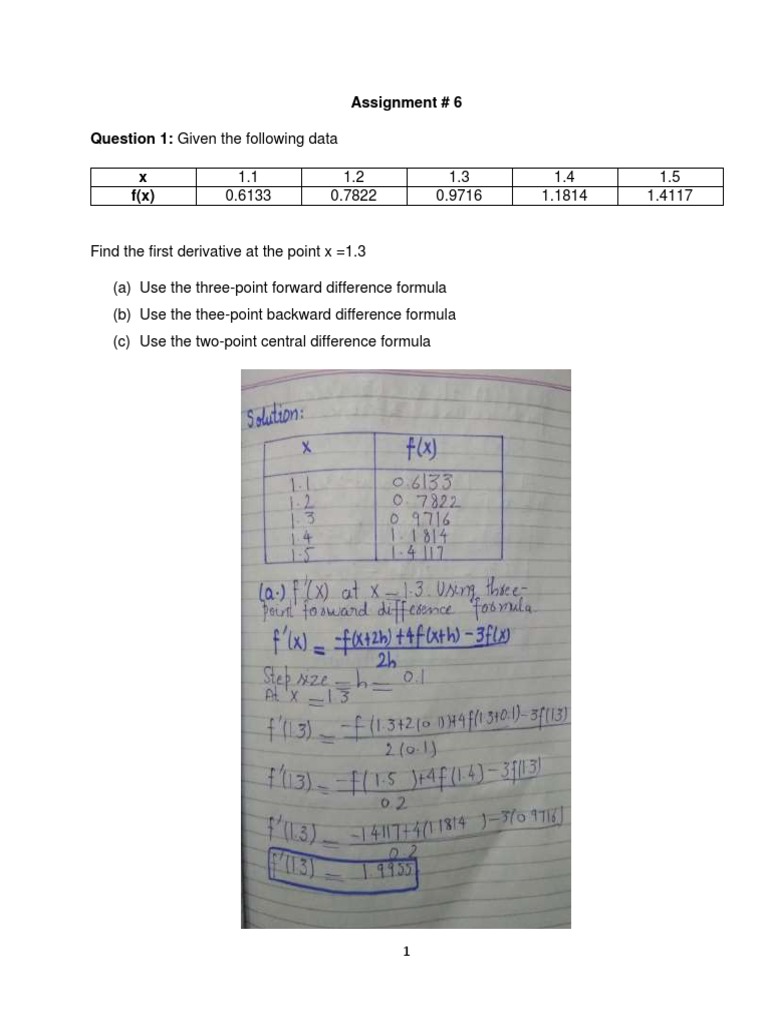 Assignment # 6
Question 1: Given the following data
x 1.1 1.2 1.3 1.4 1.5
f(x) 0.6133 0.7822 0.9716 1.1814 1.4117
Find the first derivative at the point x =1.3
(a) Use the three-point forward difference formula
(b) Use the thee-point backward difference formula
(c) Use the two-point central difference formula
Solution:
x f(x)
1.1 0.6133
1.2 0.7822
1.3 0.9716
1.4 1.1814
1.5 1.4117
(a.) f'(x) at x = 1.3 Using three-
point forward difference formula
f'(x) = -f(x+2h)+4f(x+h)-3f(x)
2h
Step size = h = 0.1
At x = 1.3
f'(1.3) = -f(1.3+2(0.1))+4f(1.3+0.1)-3f(1.3)
2(0.1)
f'(1.3) = -f(1.5)+4f(1.4)-3f(1.3)
0.2
f'(1.3) = -1.4117+4(1.1814)-3(0.9716)
0.2
f'(1.3) = 1.9955
1